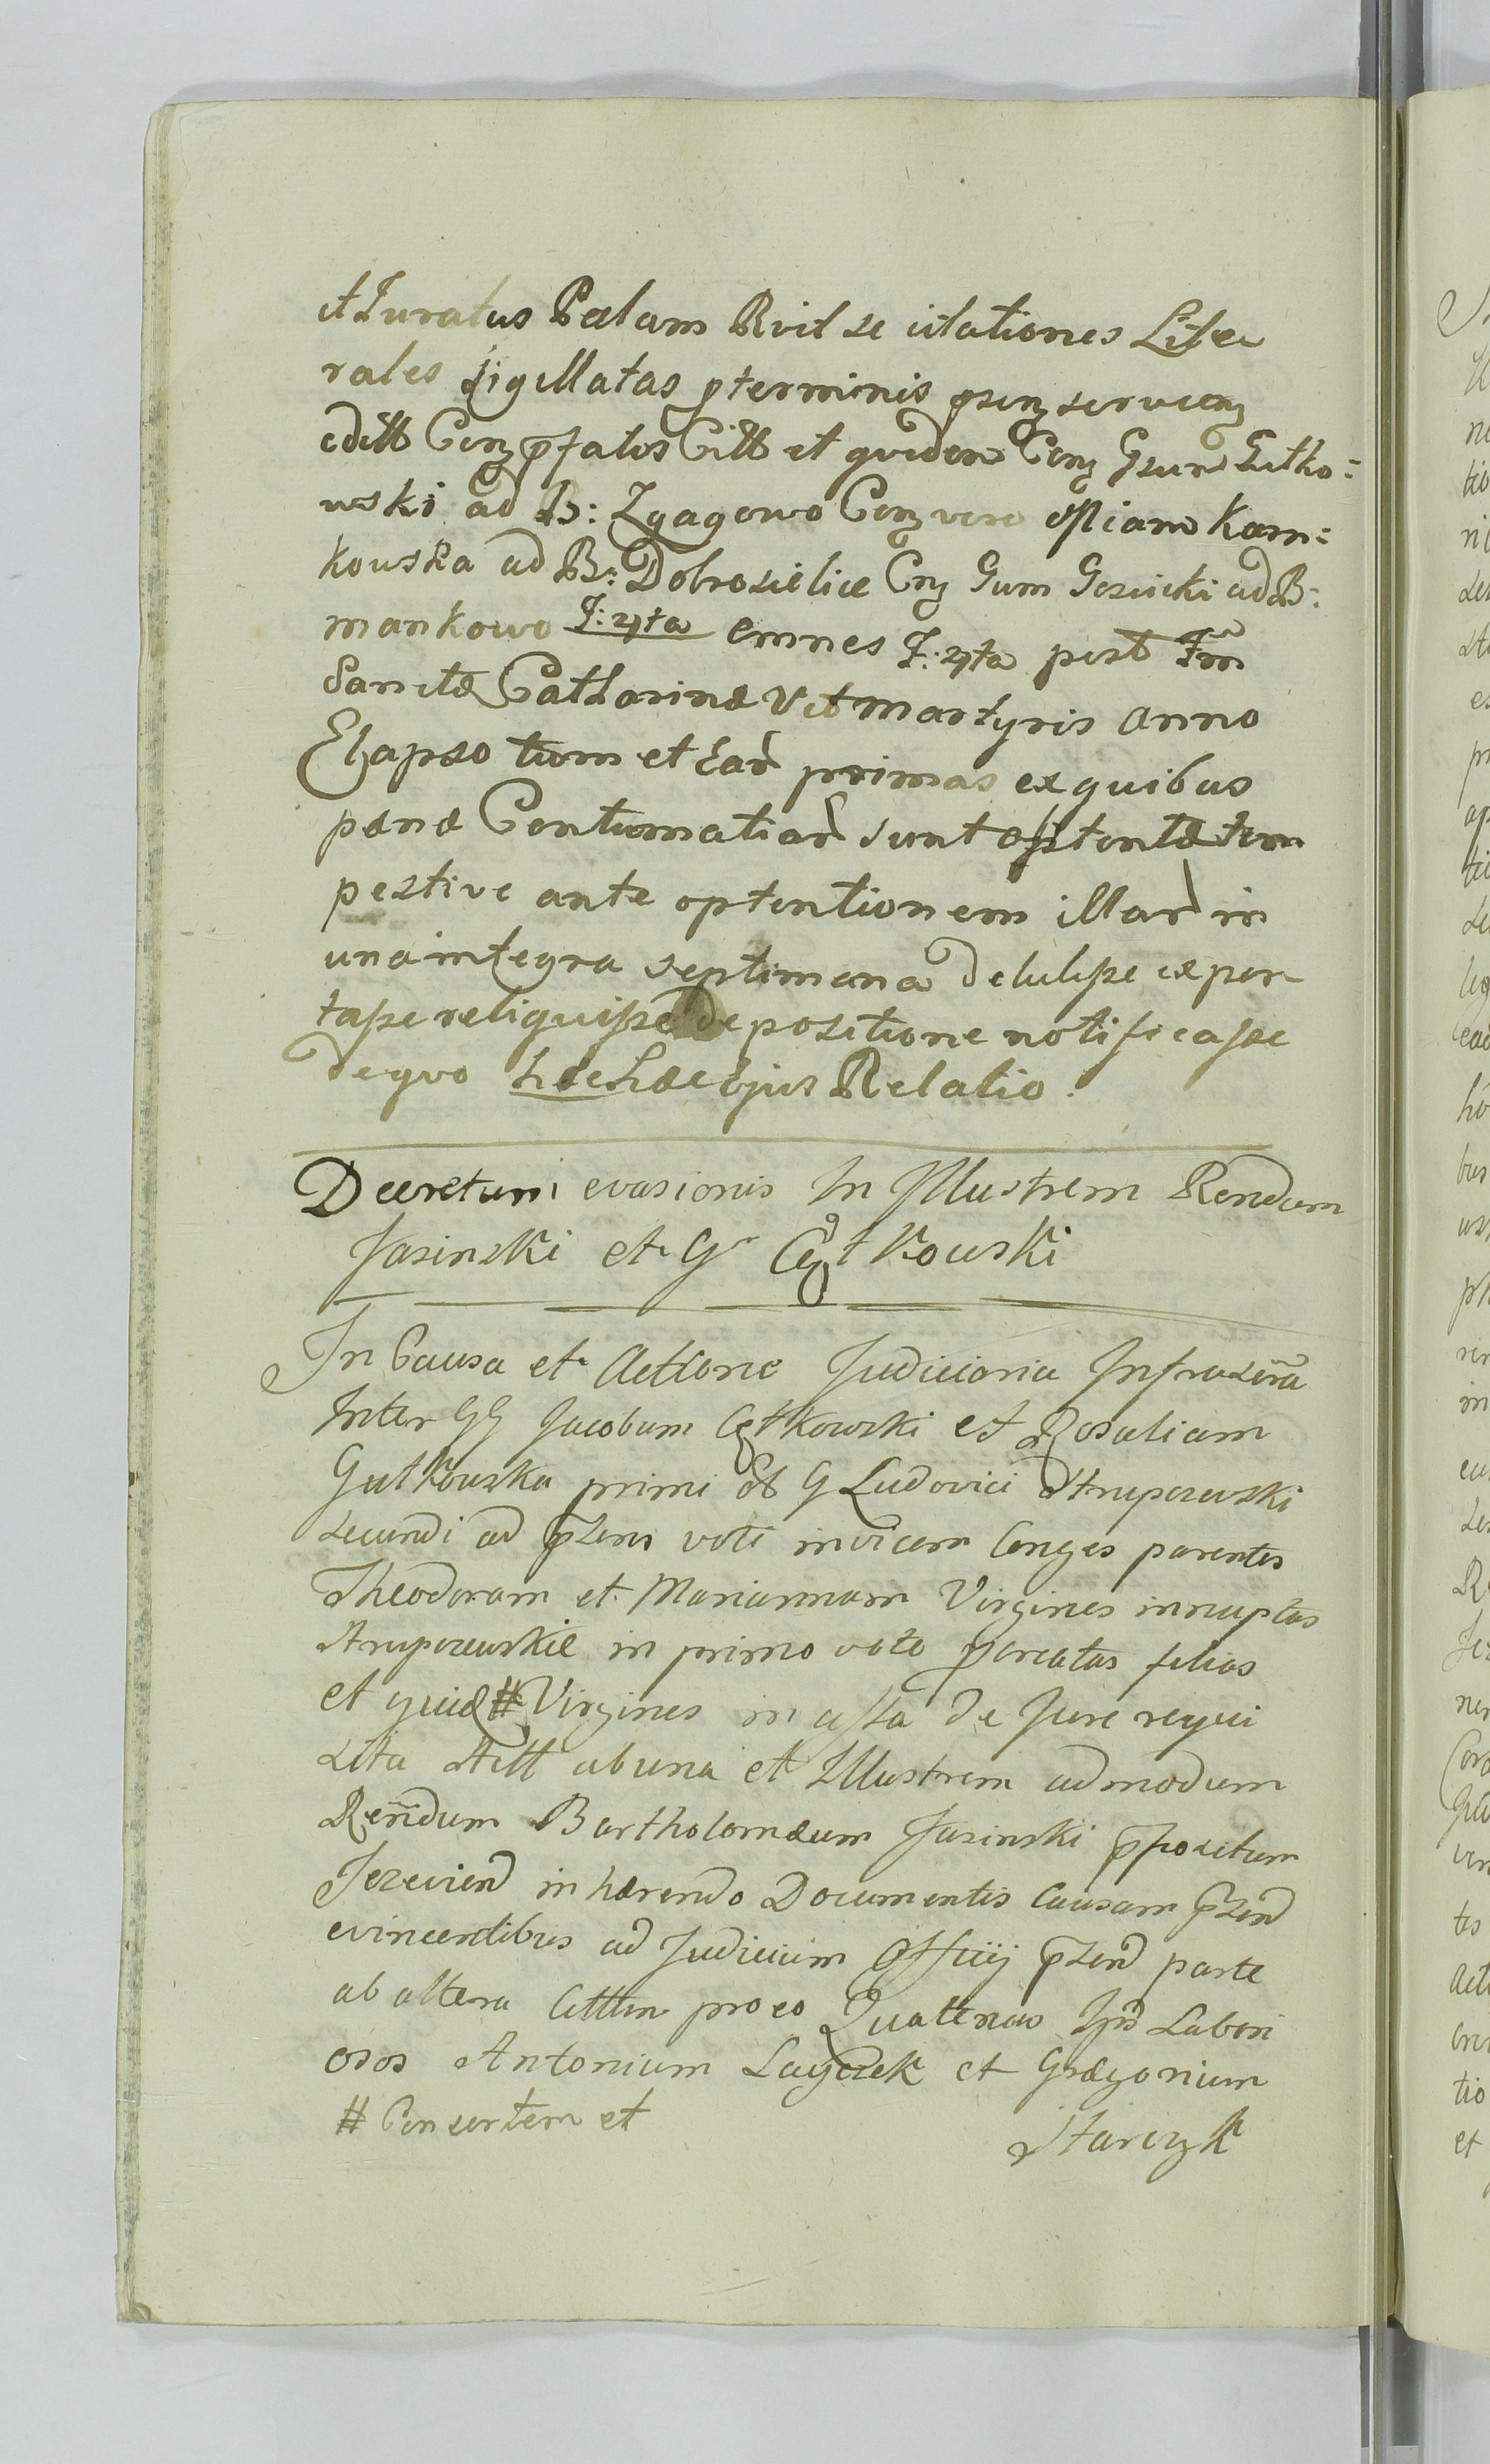 et Juratus Palam Rvit se citationes Lite
rales sigillatas p terminis psenz servienz
editt Conz pfatos Citt et quidem Conz Gsum Gutko=
wski ad B: Zgagowo Conz vero Kam=
kowska ad B: Dobrosielice Cnz Gsum Gosicki ad B:
mankowo F: 4ta omnes F: 4ta post Fm
Sanctæ Catharinæ V et martyris anno
Elapso tum et Ead primas ex quibus
pænæ Contumatiar sunt optentæ tem
pestive ante optentionem illar in
una integra septimana detulisse expor
tasse reliquisse de positione notificasse
de quo hæc hæc Ejus Relatio.
Decretum evasionis In Illustrem Rendum
Jasinski et G Cętkowski
In Causa et Actione Judiciaria Infrascra
Inter GG Jacobum Cętkowski et Rosaliam
Gutkowska primi olt G Ludovici Strupczewski
secundi ad psens voti invicem Conges parentes
Theodoram et Mariannam Virgines innuptas
Strupczewskie in primo voto percatas filias
et quid # Virgines in assta de Jure requi
sita Actt ab una et Illustrem admodum
Rendum Bartholomæum Jasinski pposi­tum
Jezeviens inhærendo Documentis Causam psend
evincentibus ad Judicium Officij psend parte
ab altera Citttm pro eo Quatenus Ipse Labori
osos Antonium Layczek et Grægorium
# Consortem et
Starczyk